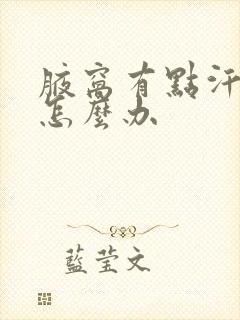 腋窩有點汗
怎麼办
藍莹文